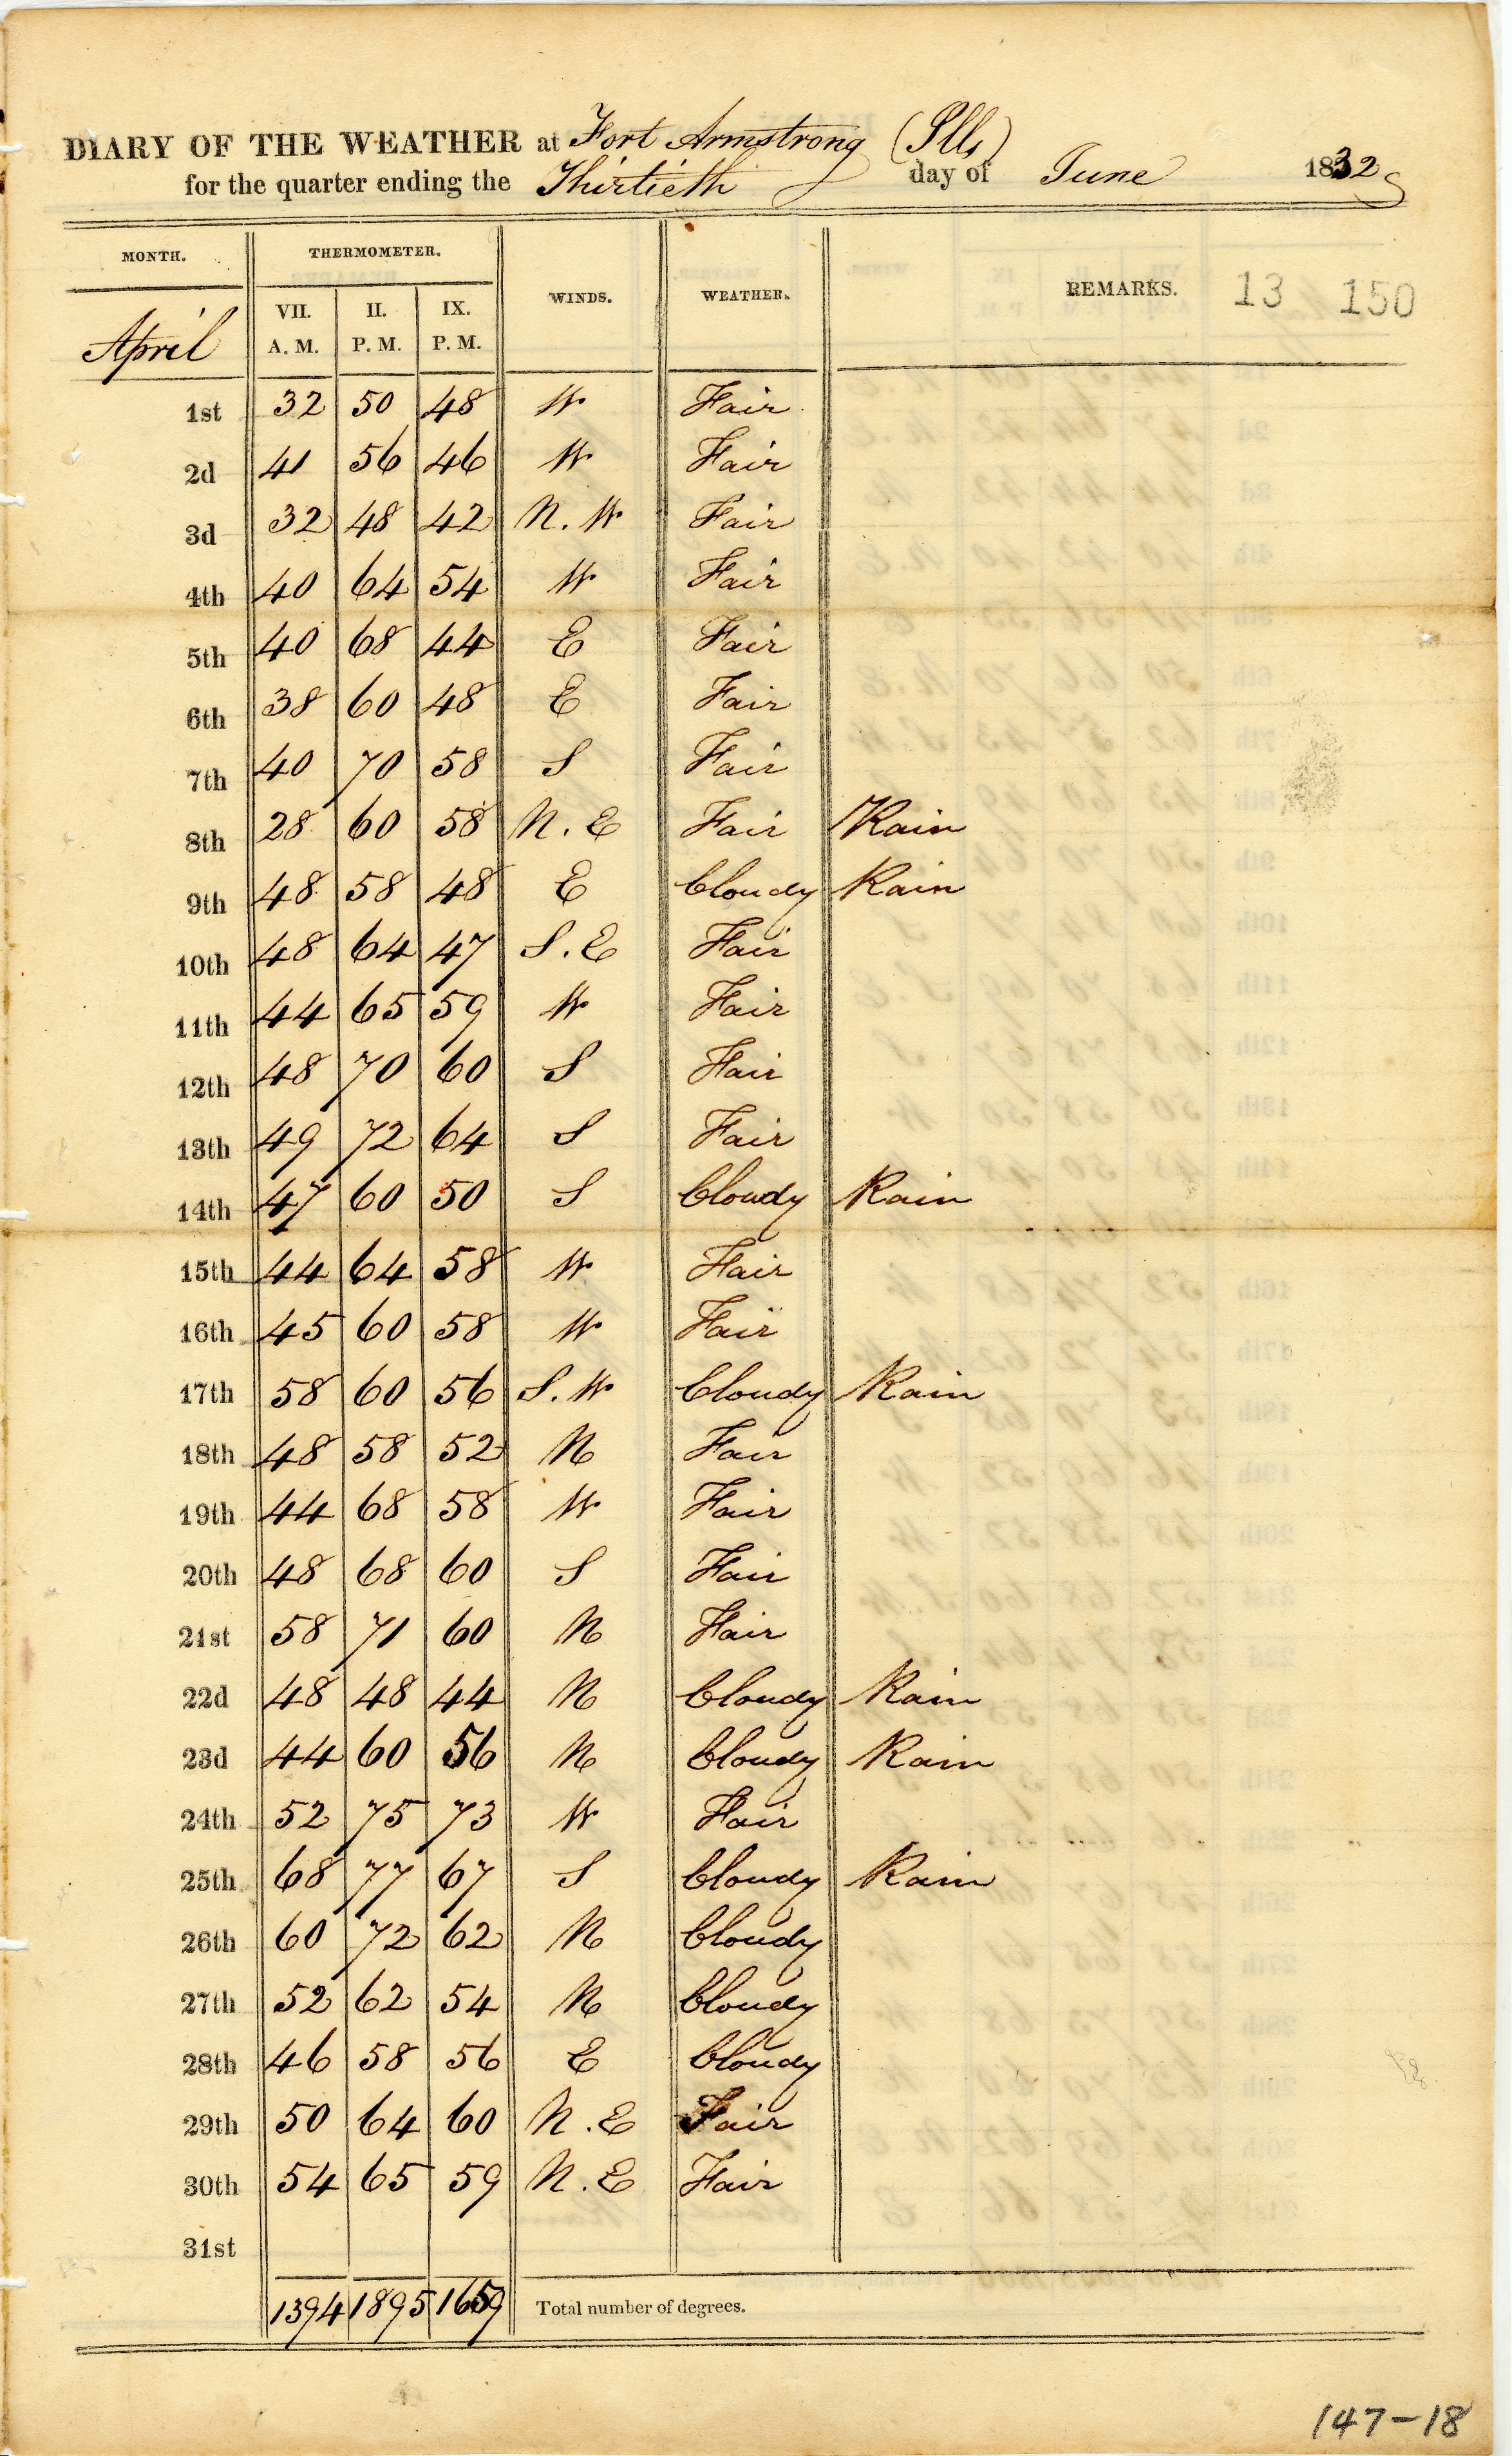 DIARY OF THE WEATHER at Fort Armstrong (Ills)
for the quarter ending the Thirtieth day of June 1832
MONTH. THERMOMETER. WINDS. WEATHER. REMARKS. 13 150
April VII. A. M. II. P. M. IX. P. M.
1st 32 50 48 W Fair
2d 41 56 46 W Fair
3d 32 48 42 N. W Fair
4th 40 64 54 W Fair
5th 40 68 44 E Fair
6th 38 60 48 E Fair
7th 40 70 58 S Fair
8th 28 60 58 N. E Fair Rain
9th 48 58 48 E Cloudy Rain
10th 48 64 47 S. E Fair
11th 44 65 59 W Fair
12th 48 70 60 S Fair
13th 49 72 64 S Fair
14th 47 60 50 S Cloudy Rain
15th 44 64 58 W Fair
16th 45 60 58 W Fair
17th 58 60 56 S. W Cloudy Rain
18th 48 58 52 N Fair
19th 44 68 58 W Fair
20th 48 68 60 S Fair
21st 58 71 60 N Fair
22d 48 48 44 N Cloudy Rain
23d 44 60 56 N Cloudy Rain
24th 52 75 73 W Fair
25th 68 77 67 S Cloudy Rain
26th 60 72 62 N Cloudy
27th 52 62 54 N Cloudy
28th 46 58 56 E Cloudy
29th 50 64 60 N. E Fair
30th 54 65 59 N. E Fair
31st
1394 1895 1659 Total number of degrees.
147-18